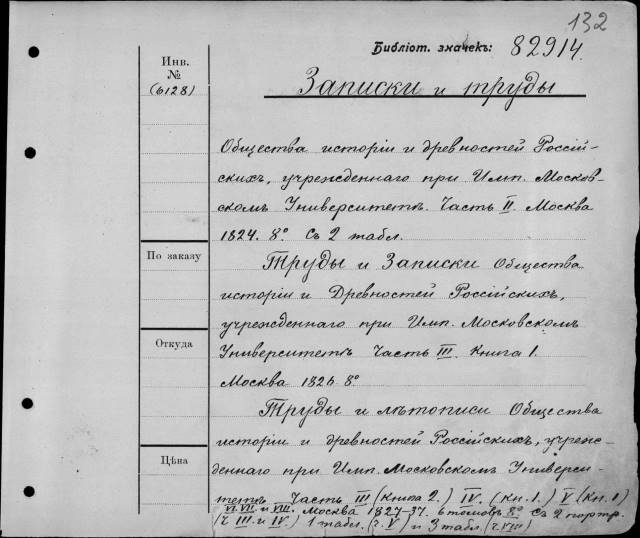 132
Библіот. значекъ: 82914.
Инв.
№
(6128)
Записки и труды
Общества исторіи и древностей Россій-
скихъ, учрежденнаго при Имп. Москов-
скомъ Университетѣ. Часть II. Москва
1824. 8°. Съ 2 табл.
По заказу
Труды и Записки Общества
исторіи и Древностей Россійскихъ,
учрежденнаго при Имп. Московскомъ
Откуда
Университетѣ Часть III. Книга 1.
Москва 1826. 8°
Труды и лѣтописи Общества
исторіи и древностей Россійскихъ, учреж-
Цѣна
деннаго при Имп. Московскомъ Универси-
тетѣ Часть III (Книга 2.) IV. (Кн. 1.) V (Кн. 1)
VI. VII. и VIII. Москва 1827-37. 6 томовъ 8°. Съ 2 портр.
(ч. III. и IV.) 1 табл. (ч. V) и 3 табл. (ч. VIII)